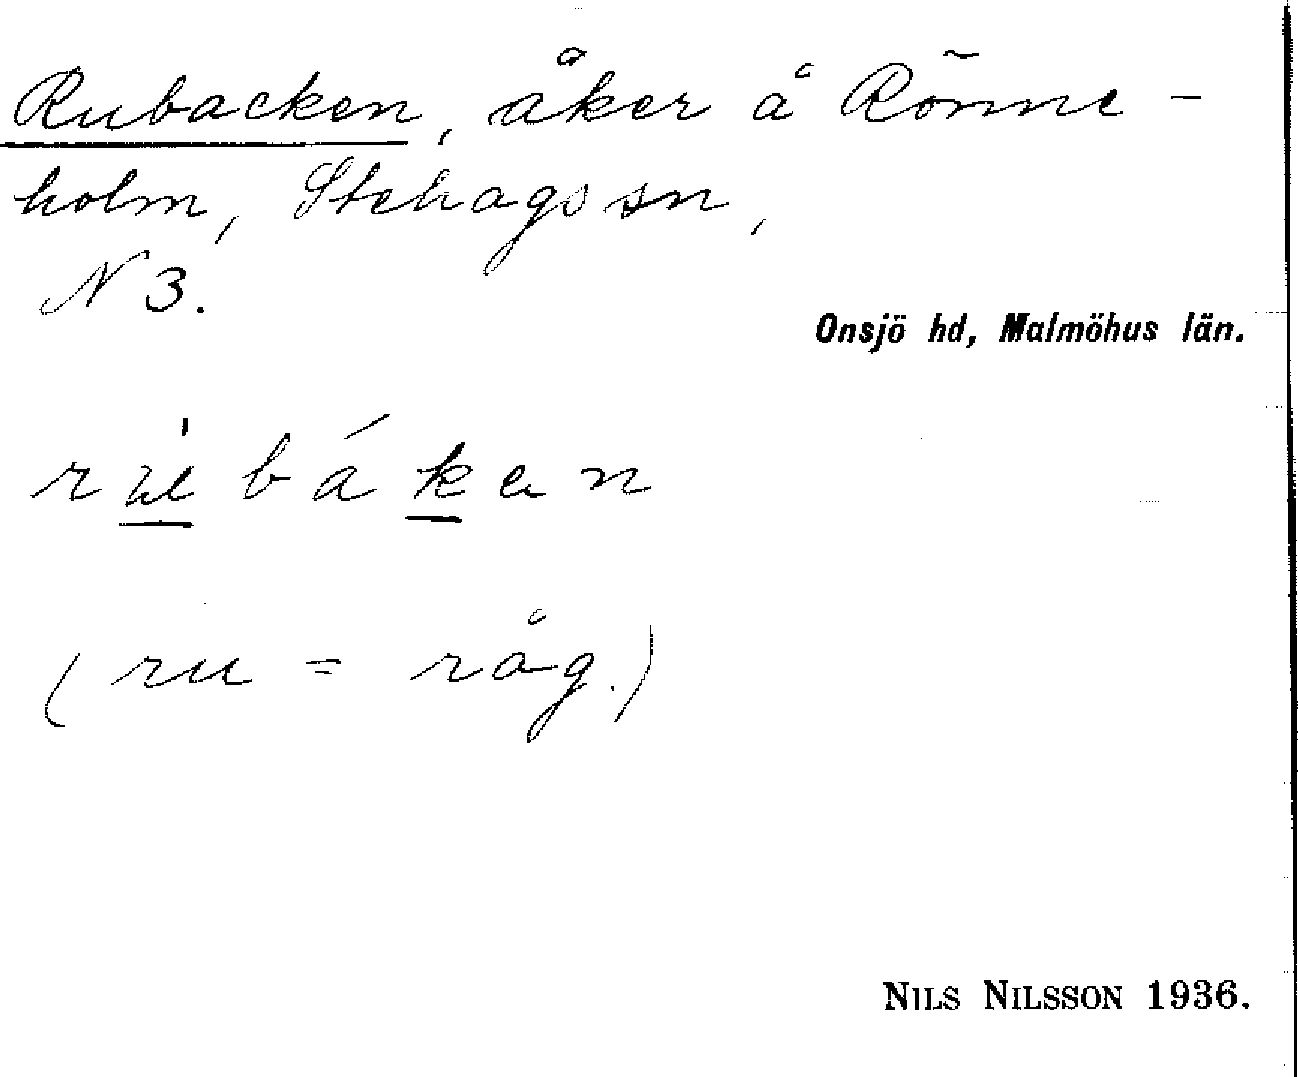 Rubacken, åker å Rönne-
holm, Stehags sn,
N 3.
Onsjö hd, Malmöhus län.
rúbákan
(ru = råg.)
NILS NILSSON 1936.